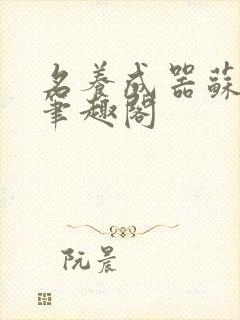 名養成器蘇
筆趣閣
阮晨